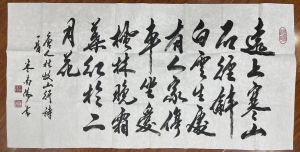 遠上寒山
石徑斜
白雲生處
有人家停
車坐愛
楓林晚霜
葉紅於二
月花
唐人杜牧山行詩
一首 米南陽書